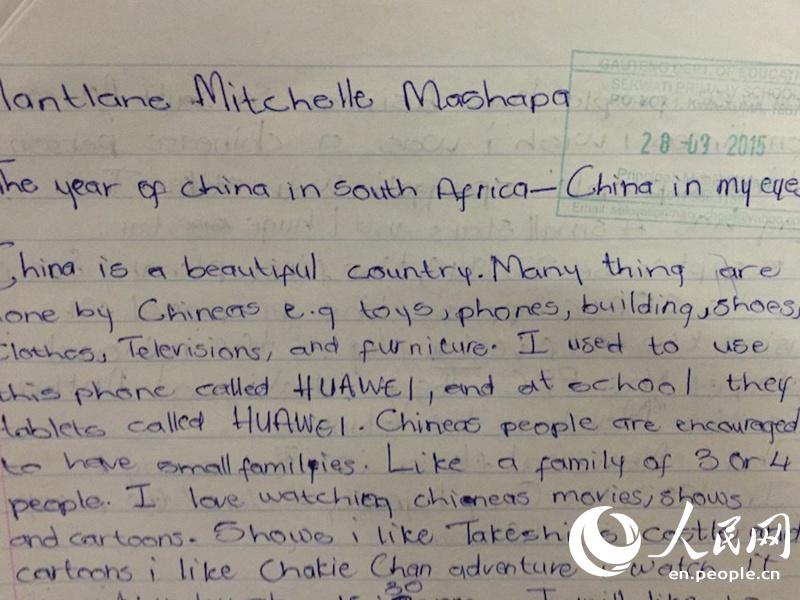 lantlane Mitchelle Mashapa
GAUTENG DEPT. OF EDUCATI
PRIMARY SCHOOL
28-03 2015
The year of china in south Africa – China in my eye
China is a beautiful country. Many thing are
one by Chineas e.g toys, phones, building, shoes,
clothes, Televisions, and furniture. I used to use
this phone called HUAWEI, and at school they
tablets called HUAWEI. Chineas people are encouraged
to have small familpies. Like a family of 3 or 4
people. I love watching chieneas movies, shows
and cartoons. Shows i like Takeshi's castle and
cartoons i like Chakie Chan adventure i watch it
30
I will like to
人民网
en.people.cn